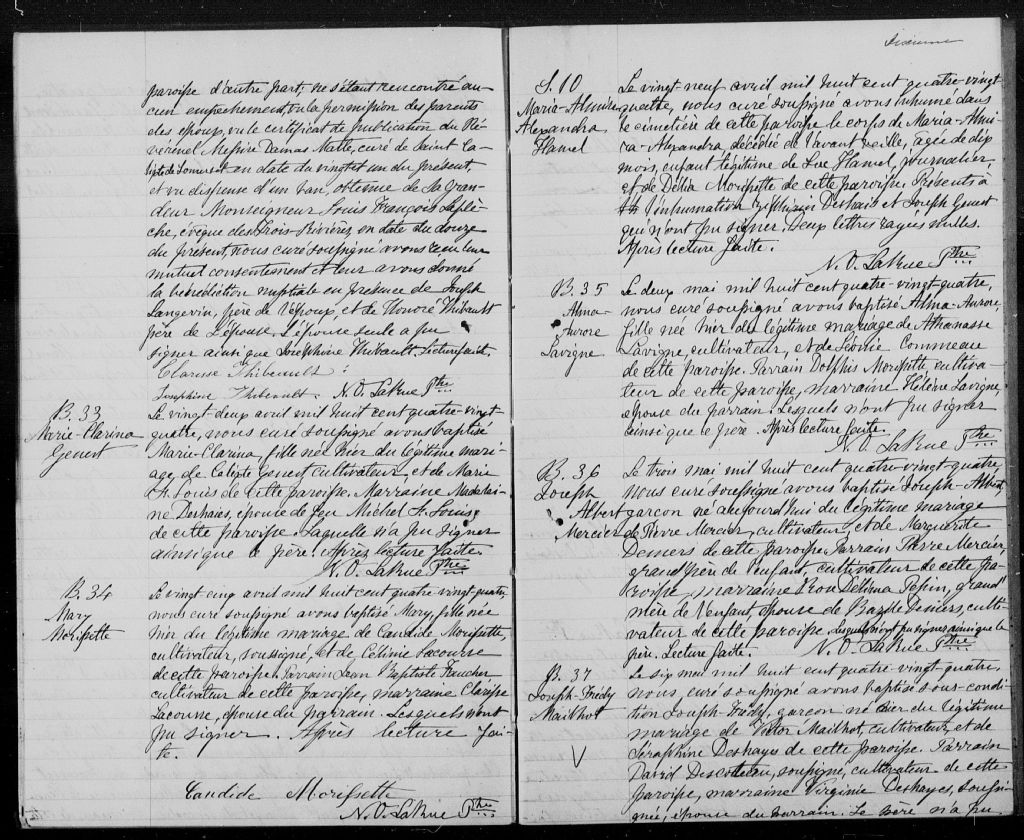 paroisse d'autre part; ne s'étant rencontré au-
cun empêchement, vu la permission des parents
des époux, vu le certificat de publication du Ré-
vérend Messire Damas Matte, curé de Saint Ca-
lixte de Somerset en date du vingt et un du présent,
et vu dispense d'un ban obtenue de Sa Gran-
deur Monseigneur Louis François Laflè-
che, évêque des Trois-Rivières, en date du douze
du présent, nous curé soussigné avons reçu leur
mutuel consentement et leur avons donné
la bénédiction nuptiale en présence de Joseph
Langevin, père de l'époux, et de Honoré Thibault
père de l'épouse. L'épouse seule a pu
signer ainsi que Joséphine Thibault. Lecture faite.
Clarisse Thibeault
Josephine Thibeault. N. O. LaRue Ptre
B. 33
Marie-Clarina
Genest
Le vingt deux avril mil huit cent quatre-vingt-
quatre, nous curé soussigné avons baptisé
Marie-Clarina, fille née hier du légitime mari-
age de Calixte Genest cultivateur, et de Marie
St. Louis de cette paroisse. Marraine Madelai-
ne Deshaies, épouse de feu Michel St. Louis
de cette paroisse. Laquelle n'a pu signer
ainsi que le père. Après lecture faite.
N. O. LaRue Ptre
B. 34
Mary
Morissette
Le vingt cinq avril mil huit cent quatre vingt quatre,
nous curé soussigné avons baptisé Mary, fille née
hier du légitime mariage de Candide Morissette,
cultivateur, soussigné, et de Célinie Lacourse
de cette paroisse. Parrain Jean Baptiste Faucher
cultivateur de cette paroisse, marraine Clarisse
Lacourse, épouse du parrain. Lesquels n'ont
pu signer. Après lecture fai-
te.
Candide Morissette
N. O. LaRue Ptre
Sixième
S. 10
Maria-Almira-
Alexandra
Hamel
Le vingt neuf avril mil huit cent quatre-vingt
quatre, nous curé soussigné avons inhumé dans
le cimetière de cette paroisse le corps de Maria-Almi-
ra-Alexandra, décédée de l'avant veille, âgée de dix
mois, enfant légitime de Luc Hamel, journalier,
et de Délia Morissette de cette paroisse. Présents à
l'inhumation Zéphirin Deshaies et Joseph Genest
qui n'ont pu signer. Deux lettres rayées nulles.
Après lecture faite.
N. O. LaRue Ptre
B. 35
Alma-
Aurore
Lavigne
Le deux mai mil huit cent quatre-vingt-quatre,
nous curé soussigné avons baptisé Alma-Aurore,
fille née hier du légitime mariage de Athanasse
Lavigne, cultivateur, et de Léonie Commeau
de cette paroisse. Parrain Dolphis Morissette cultiva-
teur de cette paroisse, marraine Hélène Lavigne,
épouse du parrain. Lesquels n'ont pu signer
ainsi que le père. Après lecture faite.
N. O. LaRue Ptre
B. 36
Joseph
Albert
Mercier
Le trois mai mil huit cent quatre-vingt-quatre,
nous curé soussigné avons baptisé Joseph-Albert,
garçon né aujourd'hui du légitime mariage
de Pierre Mercier, cultivateur, et de Marguerite
Demers de cette paroisse. Parrain Pierre Mercier,
grand'père de l'enfant, cultivateur de cette pa-
roisse, marraine Délima Pepin, grand'
mère de l'enfant, épouse de Bazile Demers, culti-
vateur de cette paroisse. Lesquels n'ont pu signer ainsi que le
père. Lecture faite. N. O. LaRue Ptre
B. 37
Joseph-Frédy
Mailhot
V
Le six mai mil huit cent quatre-vingt-quatre,
nous, curé soussigné avons baptisé sous-condi-
tion Joseph-Frédy, garçon né hier du légitime
mariage de Victor Mailhot, cultivateur, et de
Séraphine Deshayes de cette paroisse. Parrain
David Descoteau, soussigné, cultivateur de cette
paroisse, marraine Virginie Deshayes, soussi-
gnée, épouse du parrain. Le père n'a pu